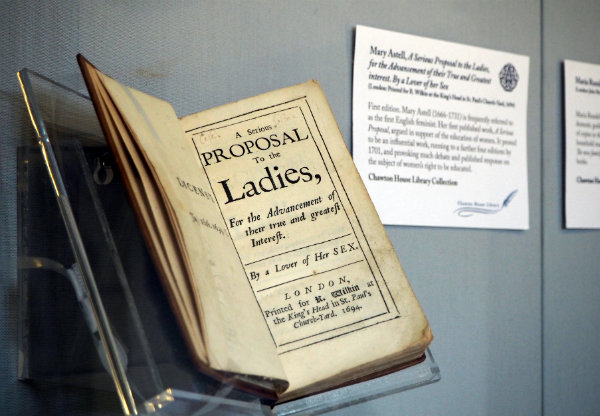 A Serious
PROPOSAL
To the
Ladies,
For the Advancement of
their true and greateſt
Intereſt.
By a Lover of Her SEX.
LONDON,
Printed for R. Wilkin at
the King's Head in St. Paul's
Church-Yard. 1694.
Mary Astell, A Serious Proposal to the Ladies,
for the Advancement of their True and Greatest
interest. By a Lover of her Sex
(London: Printed for R. Wilkin at the King's Head in St. Paul's Church Yard, 1694)
First edition. Mary Astell (1666-1731) is frequently referred to
as the first English feminist. Her first published work, A Serious
Proposal, argued in support of the education of women. It proved
to be an influential work, running to a further four editions by
1701, and provoking much debate and published response on
the subject of women's right to be educated.
Chawton House Library Collection
Chawton House
Library